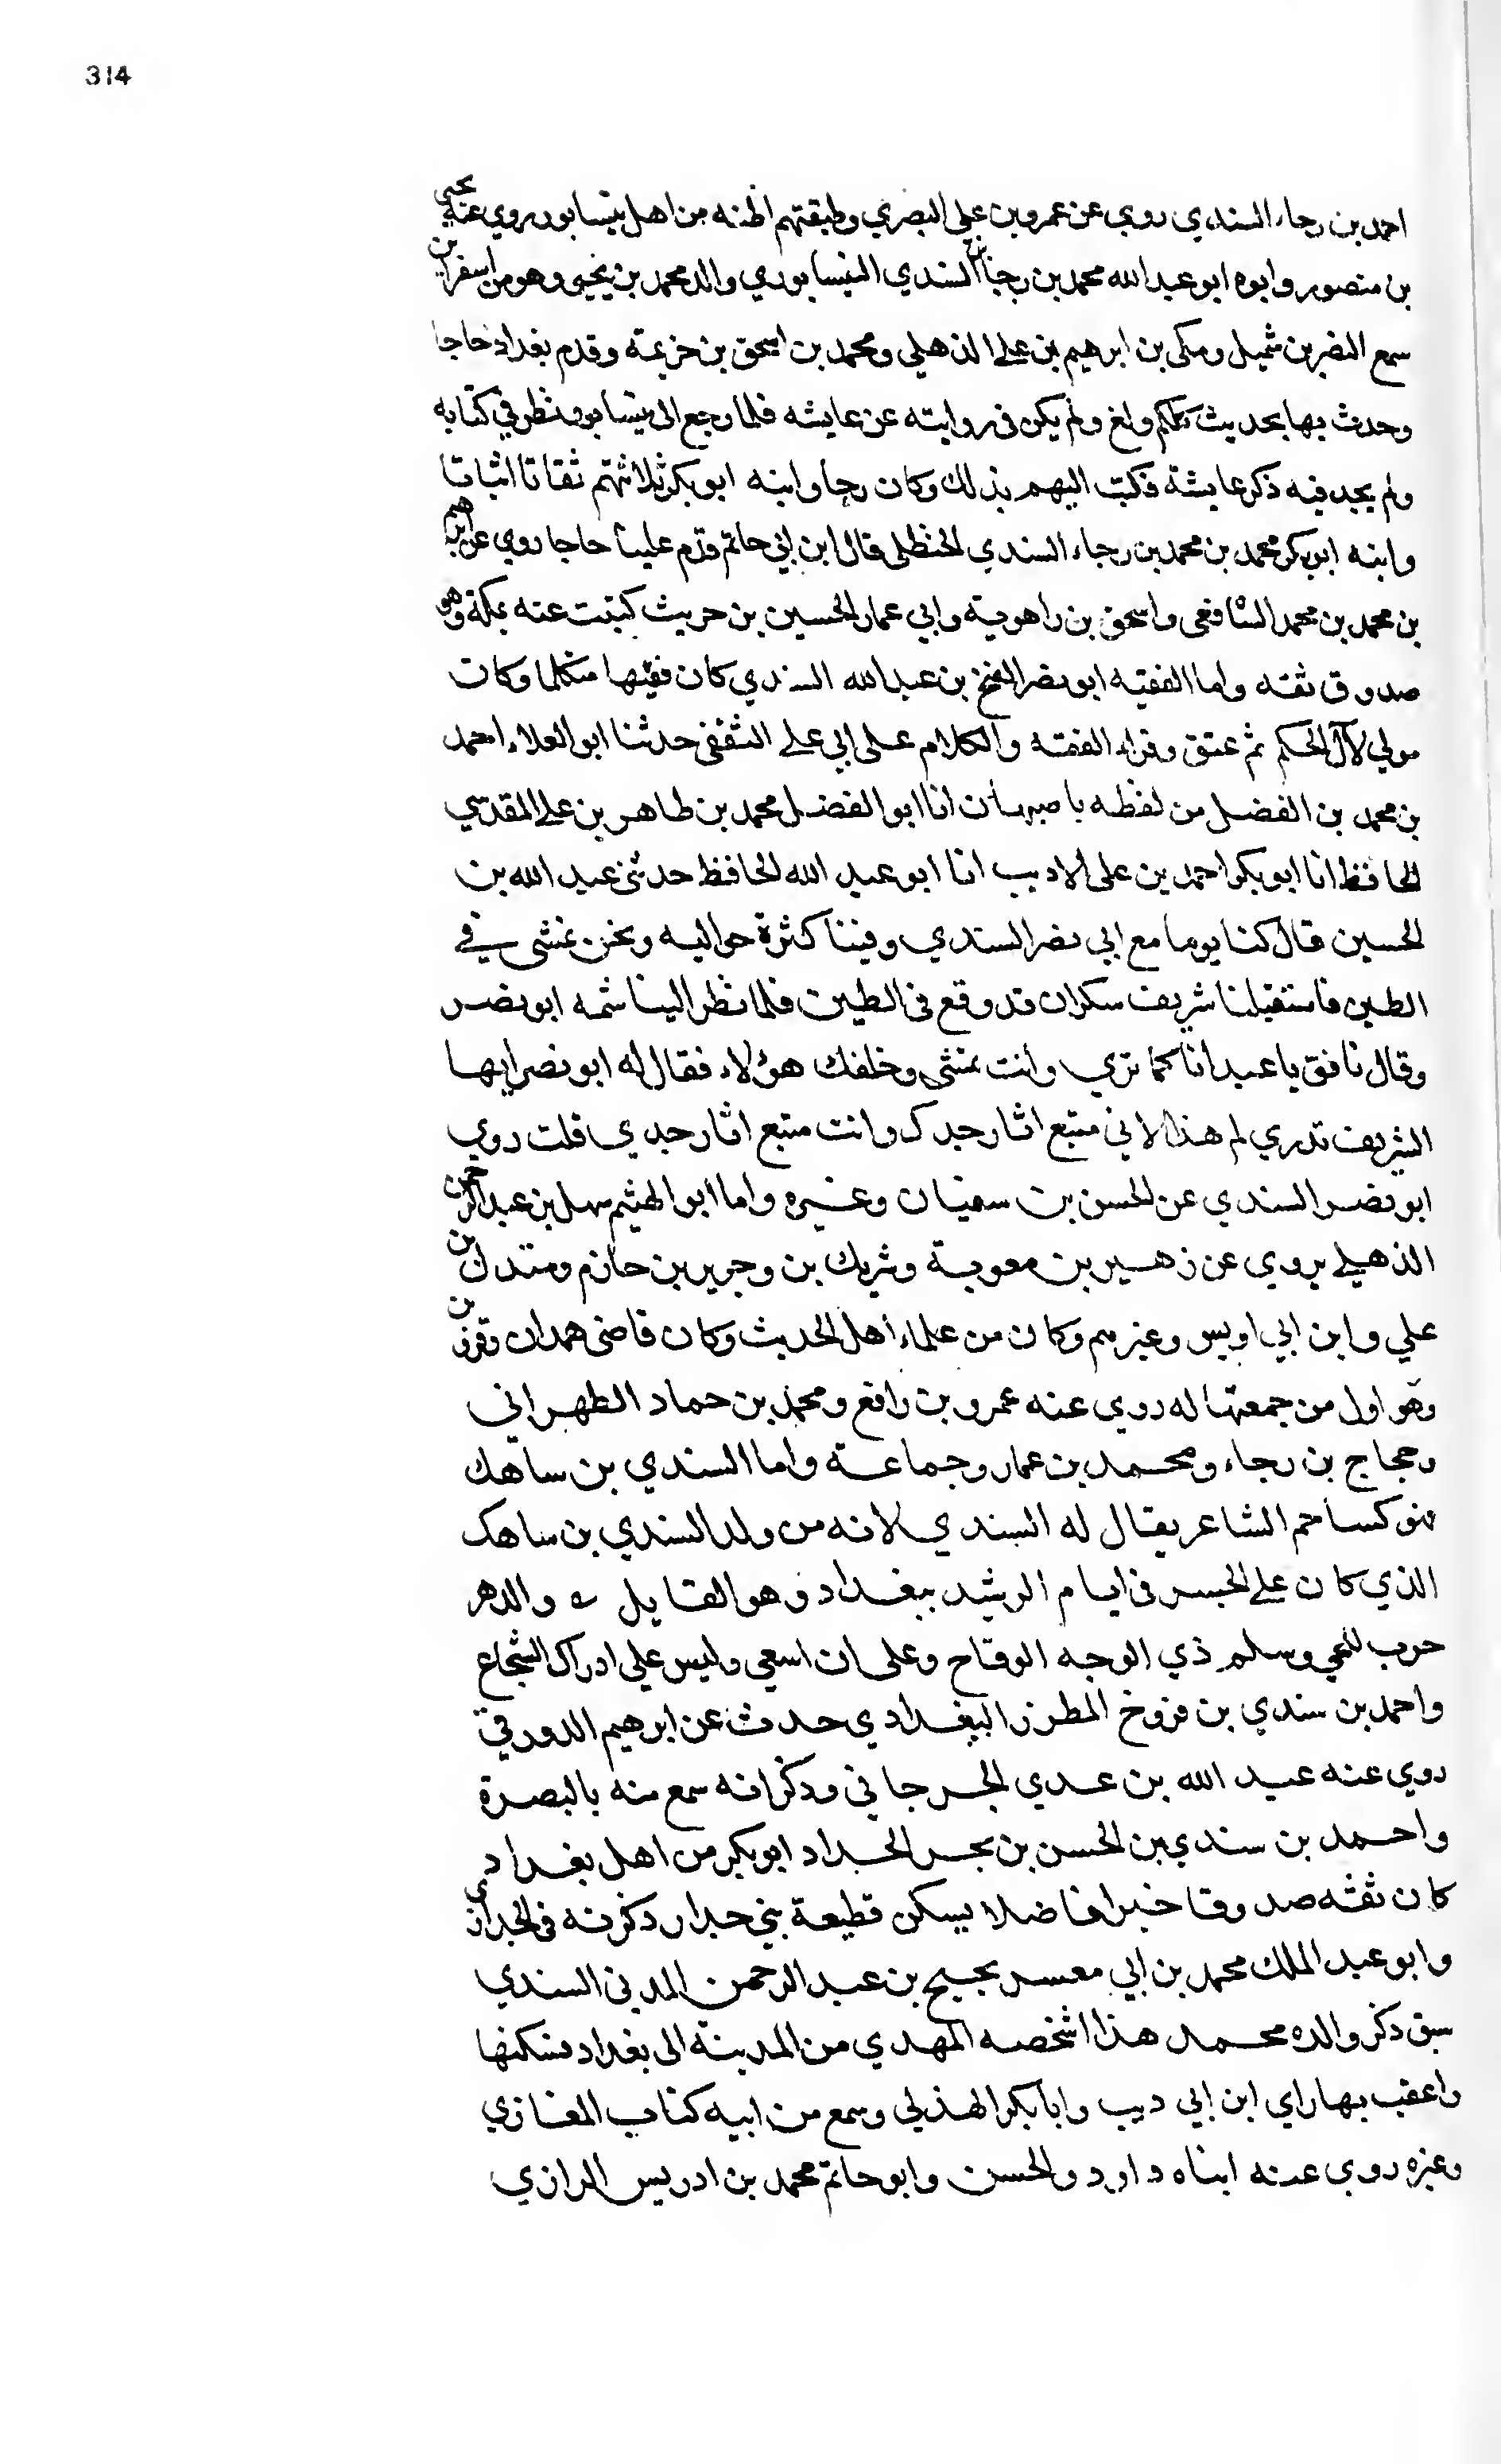 314
احمد بن رجاء السندي روي عن عمرو بن علي البصري وطبقتهم اظنه من اهل نيسابور روي عنه يحيي
بن منصور وابوه ابو عبد الله محمد بن رجا بن السندي النيسابوري والد محمد بن يحيى وهو من اسفراين
سمع النضر بن شميل ومكى بن ابرهيم بن على الذهلي ومحمد بن اسحق بن خزيمة وقدم بغداد حاجا
وحدث بها بحديث كلكم ولغ ولم يكن فى روايته عن عايشه فلما رجع الى نيسابور ونظر في كتابه
ولم يجد فيه ذكر عايشة فكتب اليهم بذلك وكان رجا وابنه ابو بكر ثلاثتهم ثقاتا اثباتا
وابنه ابو بكر محمد بن محمد بن رجاء السندي الحنظلى قال ابن ابي حاتم قدم علينا حاجا روي عن ابرهيم
بن محمد بن محمد الشافعى واسحق بن راهوية وابي عمار الحسين بن حريث كتبت عنه بمكة وهو
صدوق ثقه واما الفقيه ابو نصر الفتح بن عبد الله السندي كان فقيها متكلما وكان
مولي لآل الحكم ثم عتق وقراء الفقه والكلام على ابي على الثقفى حدثنا ابو العلاء احمد
بن محمد بن الفضل من لفظه باصبهان انا ابو الفضل محمد بن طاهر بن على المقدسي
الحافظ انا ابو بكر احمد بن على الاديب انا ابو عبد الله الحافظ حدثنى عبد الله بن
الحسين قال كنا يوما مع ابي نصر السندي وفينا كثرة حواليه ونحن نمشى في
الطين فاستقبلنا شريف سكران قد وقع فى الطين فلما نظر الينا شمه ابو نصر
وقال نافق يا عبد انا كما تري وانت تمشى وخلفك هؤلاء فقال له ابو نصر ايها
الشريف تدري لم هذا لاني متبع اثار جدك وانت متبع اثار جدي قلت روي
ابو نصر السندي عن الحسن بن سفيان وغيره واما ابو الهيثم سهل بن عبد الرحمن
الذهلي يروي عن زهير بن معوية وشريك بن وجرير بن حازم ومندل بن
علي وابن ابي اويس وغيرهم وكان من علماء اهل الحديث وكان قاضى همدان وقزوين
وهو اول من جمعتها له روي عنه عمرو بن رافع ومحمد بن حماد الطهراني
وحجاج بن رجاء ومحمد بن عمار وجماعة واما السندي بن ساهك
فهو كساحم الشاعر يقال له السندي لانه من ولد السندي بن ساهك
الذي كان على الجسر فى ايام الرشيد ببغداد وهو القايل ه والدهر
حرب للحي وسلم ذي الوجه الوقاح وعلى ان اسعي وليس علي ادراك النجاح
واحمد بن سندي بن فروخ المطرز البغدادي حدث عن ابرهيم الدورقي
روي عنه عبد الله بن عدي الجرجاني وذكر انه سمع منه بالبصرة
واحمد بن سندي بن الحسن بن بحر الحداد ابو بكر من اهل بغداد
كان ثقه صدوقا خيرا فاضلا يسكن قطيعة بني حدار ذكرته فى الحداني
وابو عبد الملك محمد بن ابي معسر نجيح بن عبد الرحمن المدني السندي
سبق ذكر والده محمد هذا اشخصه المهدي من المدينة الى بغداد فسكنها
واعقب بها راي ابن ابي ديب وابا بكر الهذلي وسمع من ابيه كتاب المغازي
وغيره روي عنه ابناه داود والحسن وابو حاتم محمد بن ادريس الرازي